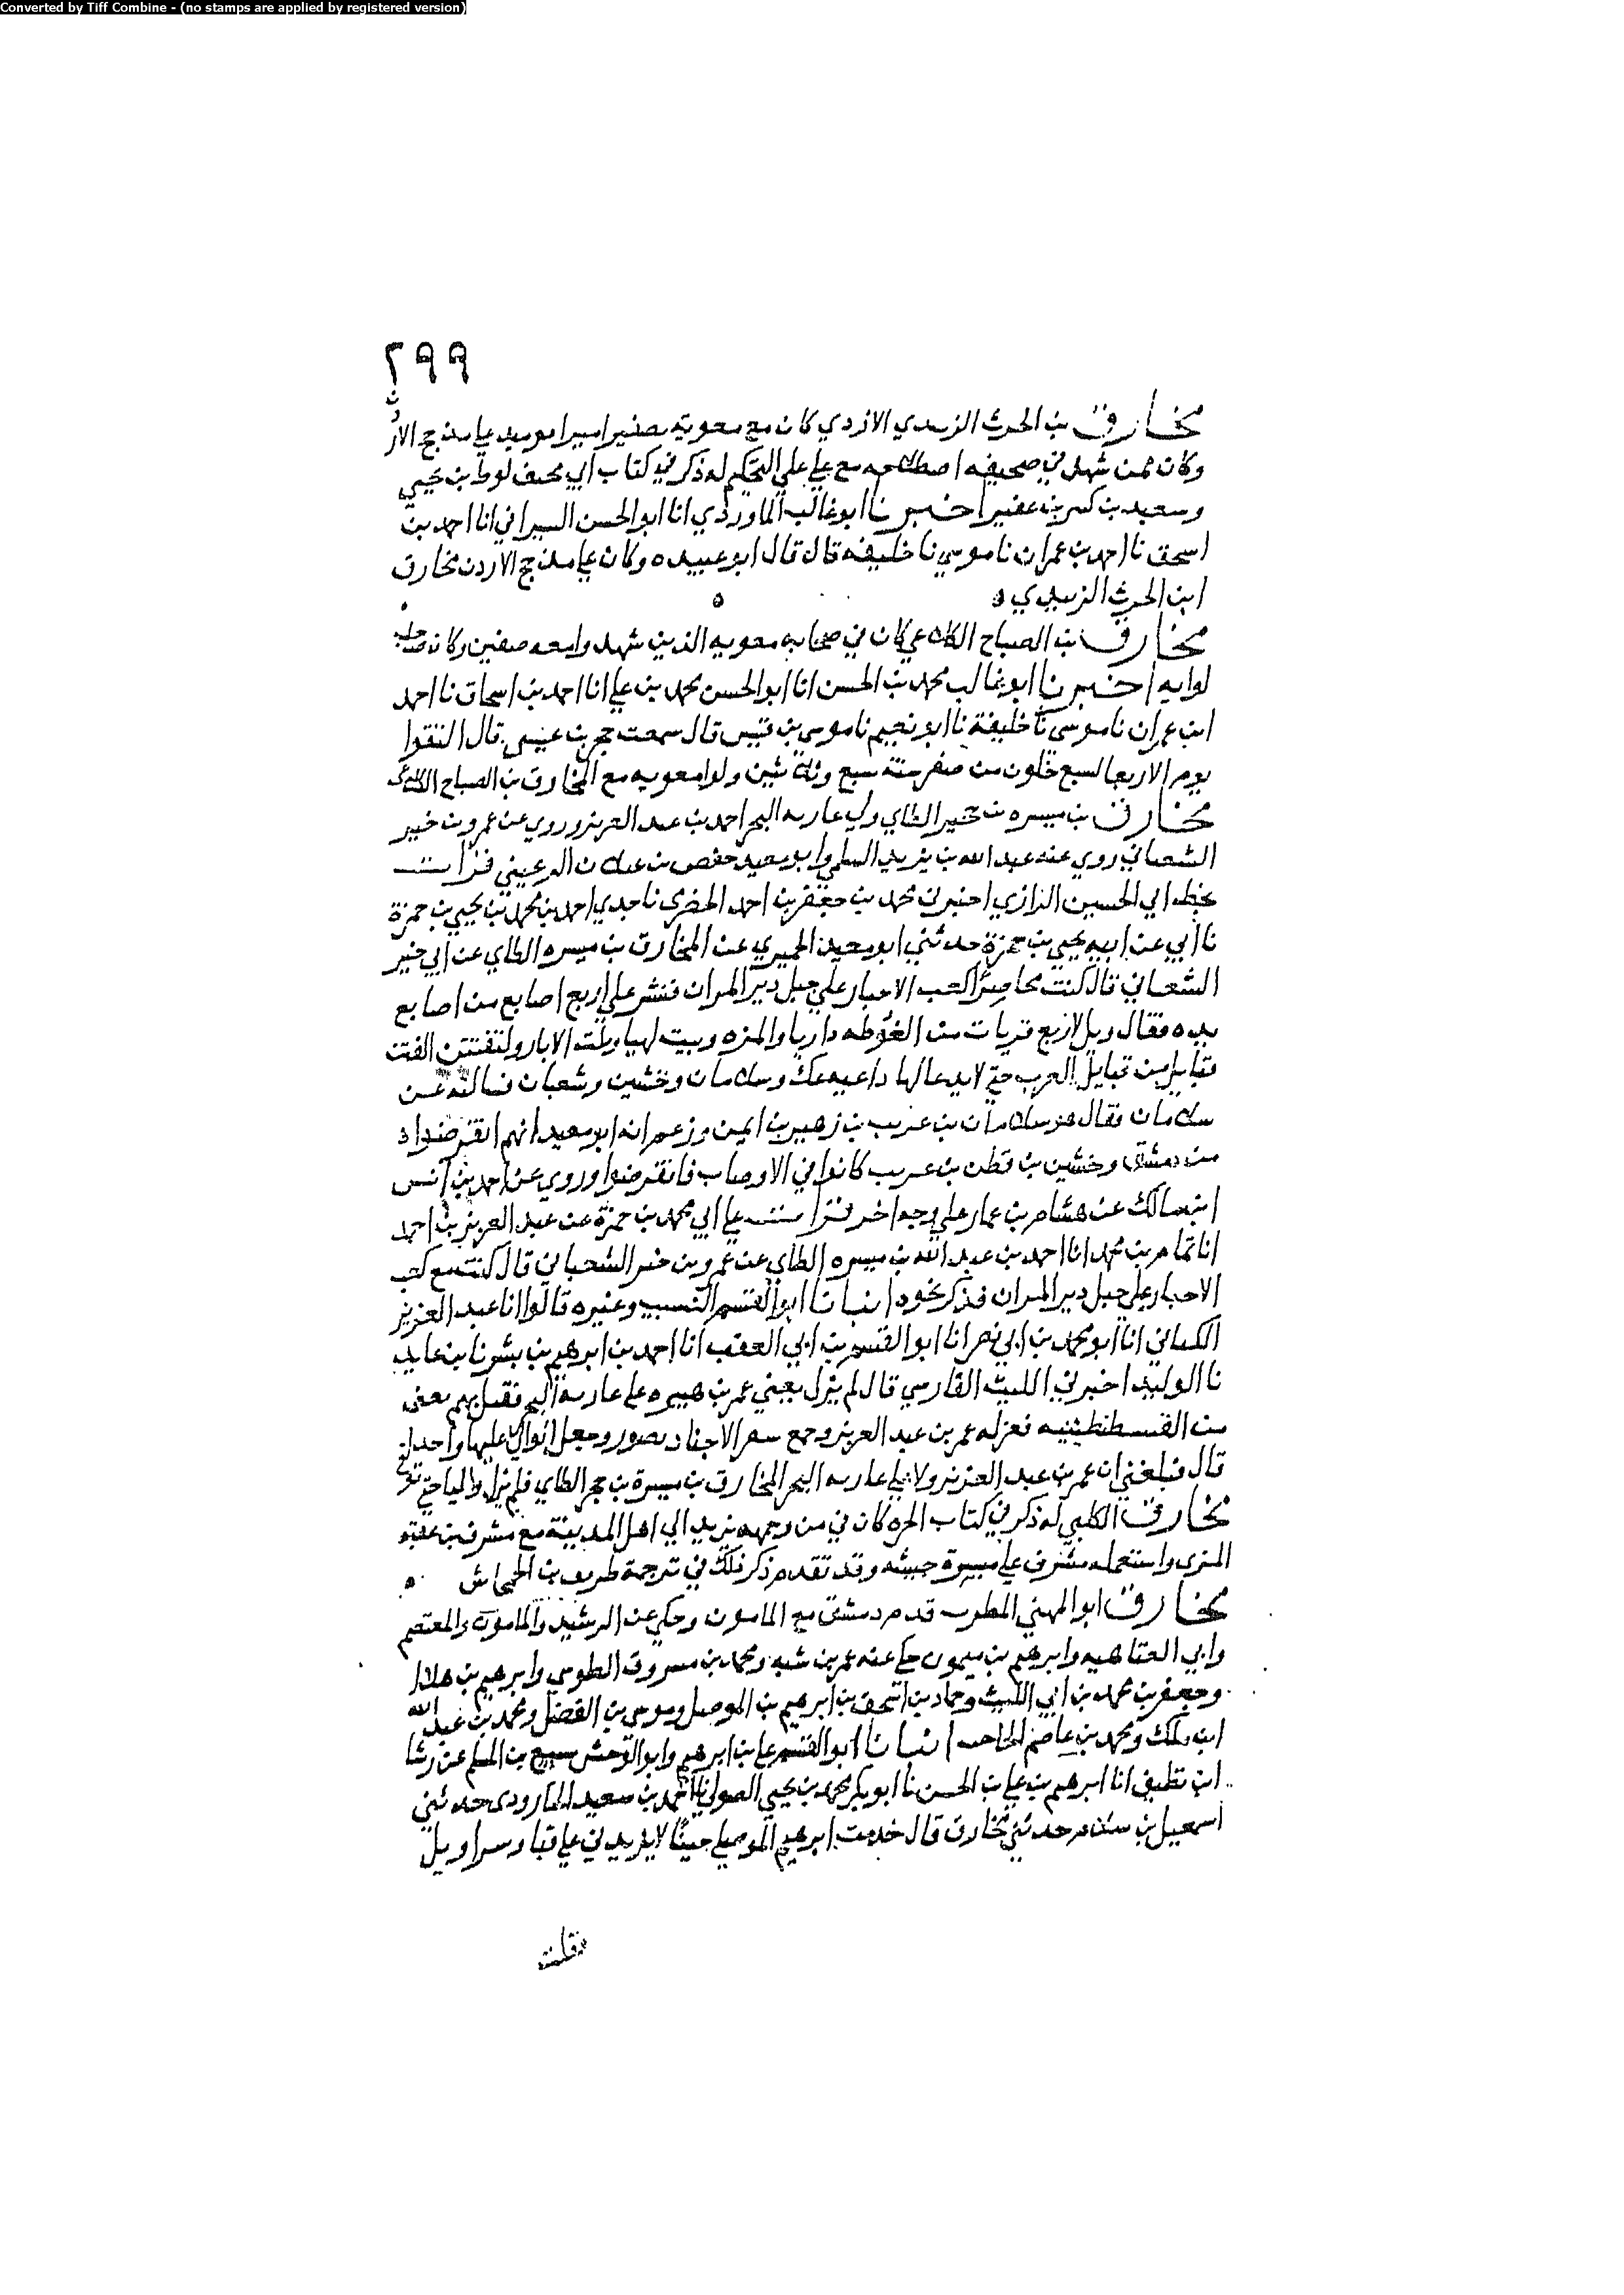 Converted by Tiff Combine - (no stamps are applied by registered version)
٢٩٩
مخارق بن الحرث الزبيدي الازدي كان مع معوية بصفين اميرا يوميد علي مذحج الاردن
وكان ممن شهد في صحيفه اصطلاحه مع علي علي التحكيم له ذكر في كتاب ابي مخنف لوط بن يحيي
وسعيد بن كثير بن عفير اخبرنا ابو غالب الماوردي انا ابو الحسن السيرافي انا احمد بن
اسحق نا احمد بن عمران نا موسي نا خليفه قال قال ابو عبيده وكان علي مذحج الاردن مخارق
ابن الحرث الزبيدي
مخارق بن الصباح الكلاعي كان في صحابه معويه الذين شهدوا معه صفين وكان صاحب
لوايه اخبرنا ابو غالب محمد بن الحسن انا ابو الحسن محمد بن علي انا احمد بن اسحاق نا احمد
ابن عمران نا موسى نا خليفة نا ابو نعيم نا موسى بن قيس قال سمعت حجر بن عنبس قال التقوا
يوم الاربعا لسبع خلون من صفر سنة سبع وثلاثين ولوا معويه مع المخارق بن الصباح الكلاعي
مخارق بن ميسره بن حجير الطاي ولي غازيه البحر احمد بن عبد العزيز وروي عن عمرو بن خير
الشعباني روي عنه عبد الله بن يزيد السلمي وابو معيد حفص بن غيلان الرعيني قرات
بخط ابي الحسين الرازي اخبرني محمد بن جعفر بن احمد الحضرمي نا جدي احمد بن محمد بن يحيي بن حمزة
نا ابي عن ابيه يحيي بن حمزة حدثني ابو معيد الحميري عن المخارق بن ميسره الطاي عن ابي خير
الشعباني قال كنت محاصرًا كعب الاحبار علي جبل دير المران فنشر علي اربع اصابع من اصابع
يده فقال ويل لاربع قريات من الغوطه داريا والمزه وبيت لهيا وبلت الابار ولتفتن الفتن
قبايل من قبايل العرب حتي لا يدعا لها داعيه عك وسلامان وخشين وشعبان فسالته عن
سلامان فقال هو سلامان بن عريب بن زهير بن ايمن وزعم انه ابو معيد انهم انقرضوا
من دمشق وخشين بن قطن بن عريب كانوا في الاوصاب فانقرضوا وروي عن احمد بن انس
ابن مالك عن هشام بن عمار علي وجه اخر قرات علي ابي محمد بن حمزة عن عبد العزيز بن احمد
انا تمام بن محمد انا احمد بن عبد الله بن ميسره الطاي عن عمرو بن خير الشعباني قال كنت مع كعب
الاحبار علي جبل دير المران فذكر نحوه انبانا ابو القسم النسيب وغيره قالوا انا عبد العزيز
الكتاني انا ابو محمد بن ابي نصر انا ابو القسم بن ابي العقب انا احمد بن ابرهيم بن بشر نا بن عايد
نا الوليد اخبرني الليث الفارسي قال لم يزل يعني عمر بن هبيره علي غازيه البحر فقفل بهم يعني
من القسطنطينيه فعزله عمر بن عبد العزيز وجمع سفر الاجناد بصور وجعل الوالي عليها واحدا
قال فبلغني ان عمر بن عبد العزيز ولا علي غازيه البحر المخارق بن ميسرة بن حجر الطاي فلم يزل واليا حتي توفي
مخارق الكلبي له ذكر في كتاب الحره كان في من وجهه يزيد الي اهل المدينة مع مشرف بن عقبة
المزى واستعمله مشرف علي ميسرة جيشه وقد تقدم ذكر ذلك في ترجمة طريف بن الحسحاس
مخارق ابو المهني المطرب قدم دمشق مع المامون وحكي عن الرشيد والمامون والمعتصم
وابي العتاهيه وابرهيم بن ميمون حكي عنه عمر بن شبه ومحمد بن مسروق الطوسي وابرهيم بن هلال
وجعفر بن محمد بن ابي الليث وحماد بن اسحق بن ابرهيم بن الموصلي وموسى بن الفضل ومحمد بن عبد الله
ابن ملك ومحمد بن عاصم الحاجب انبانا ابو القسم علي بن ابرهيم وابو الوحش سبيع بن المسلم عن رشا
ابن نظيف انا ابرهيم بن علي بن الحسن نا ابو بكر محمد بن يحيي الصولي نا احمد بن سعيد المارودى حدثني
اسمعيل بن سلام حدثني مخارق قال خدمت ابرهيم الموصلي حينًا لا يزيدني علي قبا وسراويل
فقلت